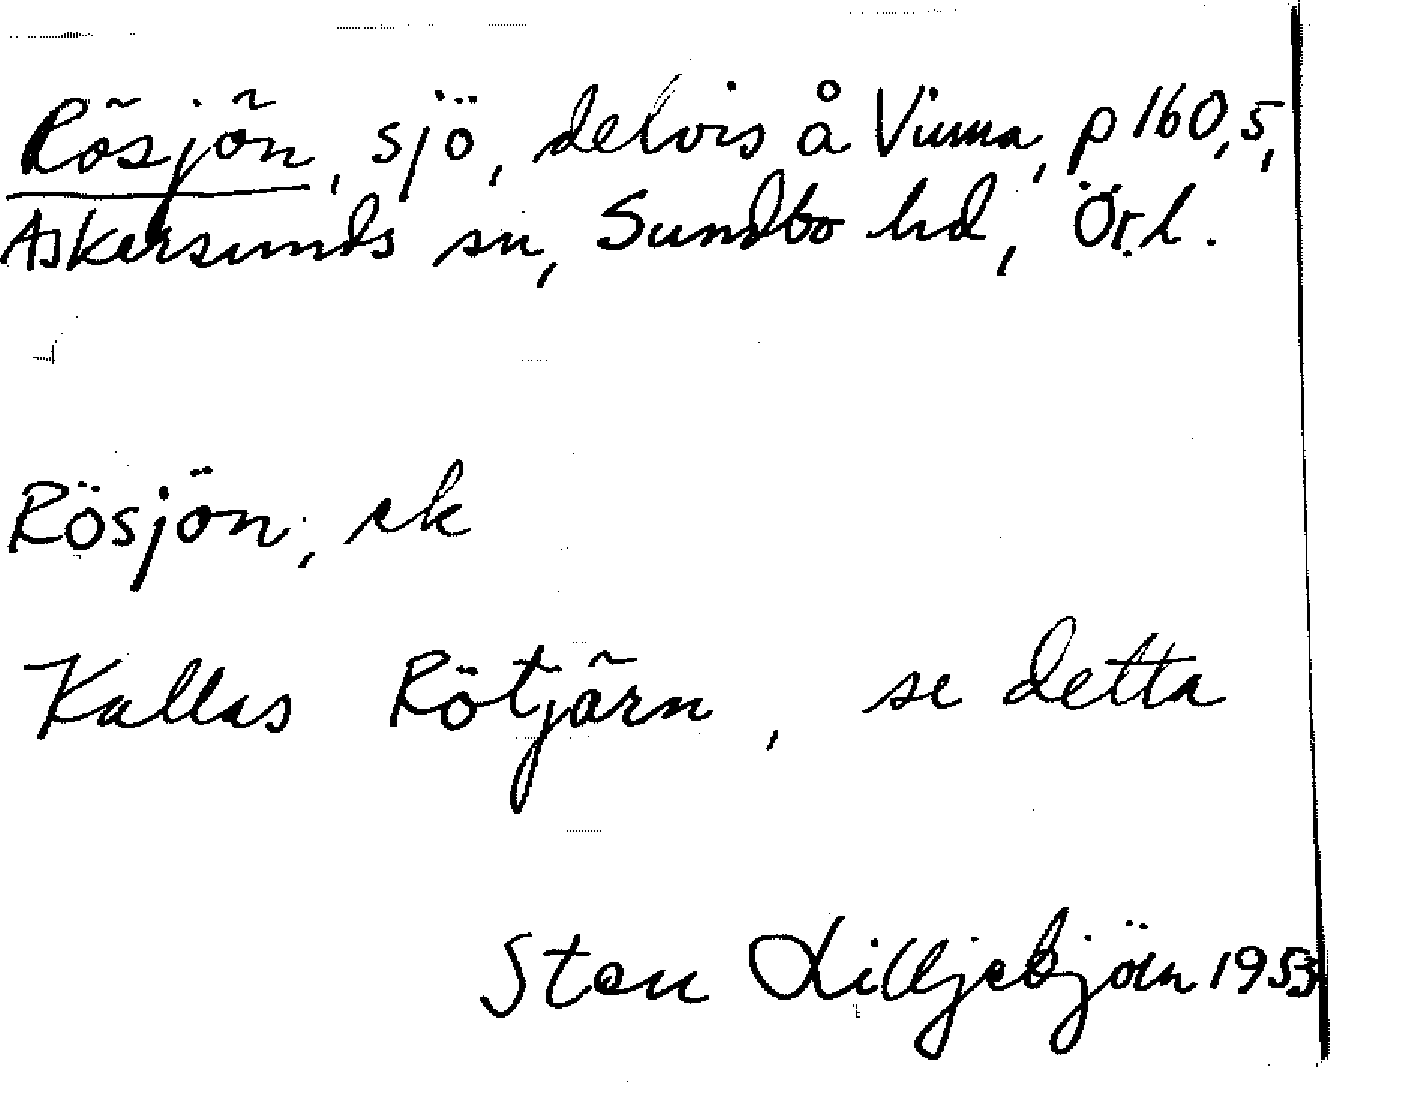 Rösjön, sjö, delvis å Vissma, p 160,5,
Askersunds sn, Sundbo hd, Ör.l.
Rösjön, ek
Kallas Rötjärn, se detta
Sten Lilljebjörn 1953